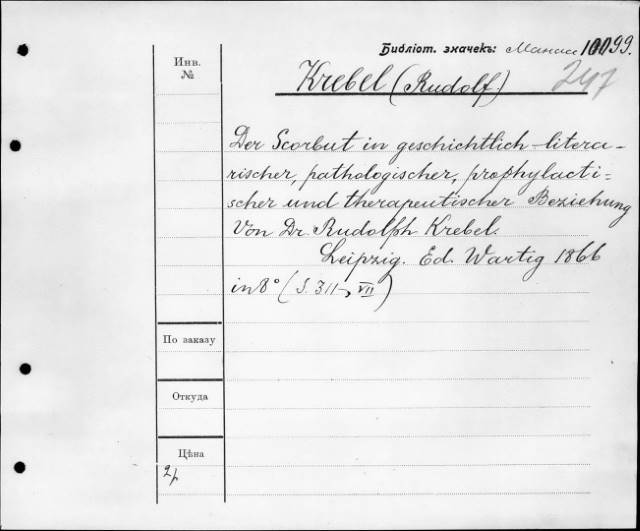 Библіот. значекъ: Манасс 10099.
Инв.
№
Krebel (Rudolf.)
247
Der Scorbut in geschichtlich-litera-
rischer, pathologischer, prophylacti=
scher und therapeutischer Beziehung
Von Dr. Rudolph Krebel.
Leipzig. Ed. Wartig 1866
in 8° (S. 311, VII)
По заказу
Откуда
Цѣна
2р